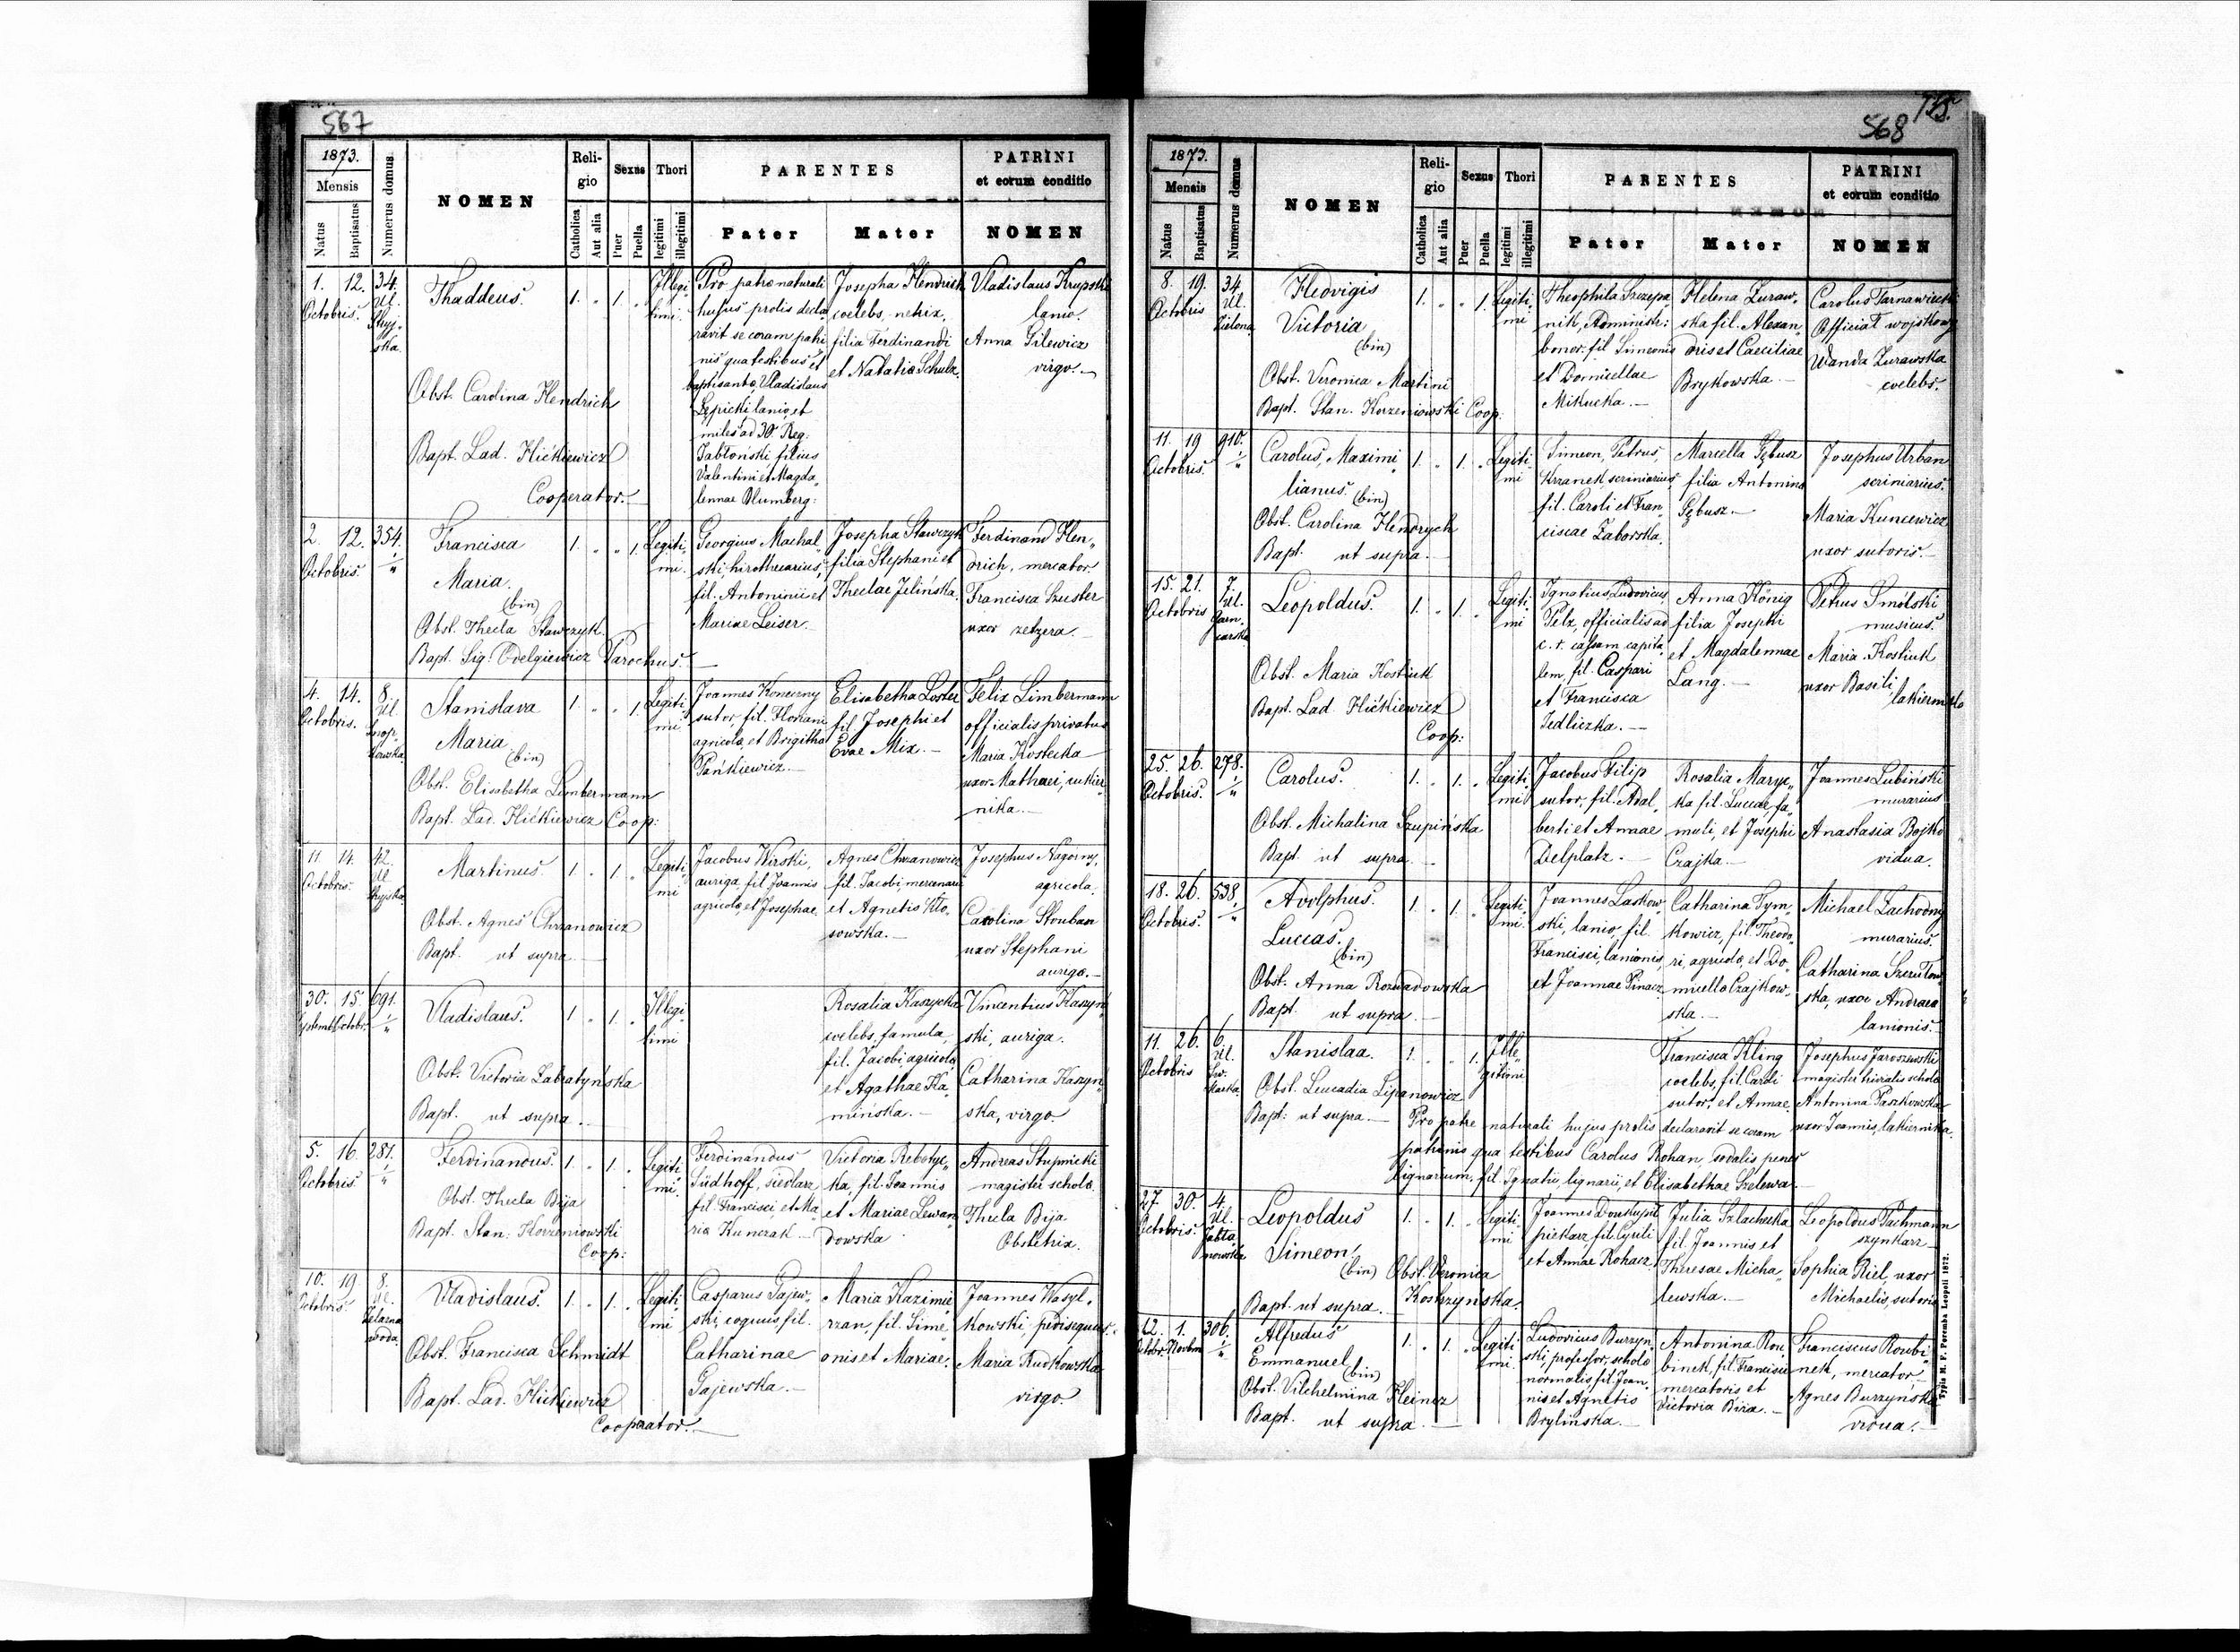 567
1873.
Mensis
Natus
Baptisatus
Numerus domus
NOMEN
Religio
Catholica
Aut alia
Sexus
Puer
Puella
Thori
legitimi
illegitimi
PARENTES
Pater
Mater
PATRINI
et eorum conditio
NOMEN
1. 12. 34.
Octobris.
Ul.
Stryj-
ska.
Thaddeus.
1. „ 1. „
Illegi-
timi.
Obst. Carolina Hendrich
Bapt. Lad. Hićkiewicz
Cooperator.
Pro patre naturali
hujus prolis decla
ravit se coram patri
nis qua testibus et
baptisante Vladislaus
Łępicki lanio et
miles ad 30 Reg.
Jabłoński filius
Valentini et Magda„
lennae Blumberg.
Josepha Hendrich
coelebs, netrix,
filia Ferdinandi
et Natalia Schulz.
Vladislaus Krupski
lanio.
Anna Gilewicz
virgo.
2. 12. 354.
Octobris.
Francisca
Maria.
(bin)
1. „ „ 1.
Legiti„
mi.
Obst. Thecla Stawczyk.
Bapt. Sig. Odelgiewicz Parochus.
Georgius Machal„
ski, hirothecarius,
fil. Antoninii et
Mariae Leiser.
Josepha Stawczyk
filia Stephani et
Theclae Jelińska.
Ferdinand Hen„
drich, mercator
Francisca Szuster
uxor zetzera.
4. 14. 8.
Octobris.
Ul.
Stanislava
Maria
(bin)
1. „ „ 1.
Legiti„
mi
Obst. Elisabetha Limbermann
Bapt. Lad. Hićkiewicz Coop:
Joannes Konecny
sutor, fil. Floriani
agricola, et Brigitha
Pańkiewicz.
Elisabetha Loster
fil. Josephi et
Evae Mix.
Felix Limbermann
officialis privatus
Maria Kostecka
uxor Mathaei, cukier„
nika.
11. 14. 42.
Octobris.
Ul.
Stryjska
Martinus.
1. „ 1. „
Legiti„
mi
Obst. Agnes Chrzanowicz
Bapt. ut supra
Jacobus Wirski,
auriga, fil. Joannis
agricola, et Josephae.
Agnes Chrzanowicz
fil. Jacobi, mercenarii
et Agnetis Kło„
sowska.
Josephus Nagórny,
agricola,
Carolina Stouban
uxor Stephani
auriga.
30. 15. 691.
Septemb. Octobr.
Vladislaus.
1. „ 1. „
Illegi
timi
Obst. Victoria Zabratyńska
Bapt. ut supra.
Rosalia Kaszycka
coelebs, famula,
fil. Jacobi, agricola,
et Agathae Ka„
mińska.
Vincentius Kaszyń„
ski, auriga.
Catharina Kaszyń„
ska, virgo
5. 16. 281.
Octobris.
Ferdinandus.
1. „ 1. „
Legiti„
mi.
Obst. Thecla Bija
Bapt. Stan. Korzeniowski
Coop:
Ferdinandus
Südhoff, siodlarz
fil. Francisci, et Ma„
ria Kunczak
Victoria Rebetyc„
ka, fil. Joannis
et Mariae Lewan„
dowska
Andreas Stupnicki
magister schola.
Thecla Bija
Obstetrix.
10. 19. 8.
Octobris.
Ul.
Żelazna
woda.
Vladislaus.
1. „ 1. „
Legiti„
mi
Obst. Francisca Schmidt
Bapt. Lad. Hićkiewicz
Cooperator.
Casparus Gajew„
ski, coquus, fil.
Catharinae
Gajewska.
Maria Kazimie„
rzan, fil. Sime„
onis et Mariae.
Joannes Wasyl„
kowski pedisequus.
Maria Rudkowska
virgo.
568
1873.
Mensis
Natus
Baptisatus
Numerus domus
NOMEN
Religio
Catholica
Aut alia
Sexus
Puer
Puella
Thori
legitimi
illegitimi
PARENTES
Pater
Mater
PATRINI
et eorum conditio
NOMEN
8. 19. 34.
Octobris
Ul.
Zielona
Hedvigis
Victoria
(bin)
1. „ „ 1.
Legiti„
mi
Obst. Veronica Martini
Bapt. Stan. Korzeniowski Coop:
Theophila Szczepa„
nik, Administr:
bonor. fil. Simeonis
et Domicellae
Mikucka.
Helena Żuraw„
ska fil. Alexan„
dris et Caeciliae
Brykowska.
Carolus Tarnawiecki
Officiał wojskowy
Wanda Żurawska
coelebs.
11. 19. 910.
Octobris.
Carolus, Maximi„
lianus. (bin)
1. „ 1. „
Legiti„
mi
Obst. Carolina Hendrych
Bapt. ut supra.
Simeon, Petrus,
Krzanek, scriniarius,
fil. Caroli et Fran„
ciscae Zaborska.
Marcella Gębusz
filia Antonina
Gębusz.
Josephus Urban
scriniarius.
Maria Kuncewicz
uxor sutoris.
15. 21. 7.
Octobris
Ul.
Garn„
carska
Leopoldus.
1. „ 1. „
Legiti„
mi
Obst. Maria Kostiuk
Bapt. Lad. Hićkiewicz
Coop:
Ignatius, Ludovicus,
Pelz, officialis ad
c. r. cassam capita„
lem, fil. Caspari
et Francisca
Jedliczka.
Anna König
filia Josephi
et Magdalennae
Lang.
Petrus Smólski
musicus.
Maria Kostiuk
uxor Basili,
25. 26. 278.
Octobris.
Carolus.
1. „ 1. „
Legiti„
mi
Obst. Michalina Szupińska
Bapt. ut supra.
Jacobus Filip
sutor, fil. Adal„
berti et Annae
Delplatz.
Rosalia Maryc„
ka fil. Luccae fa„
muli, et Josephi
Czajka.
Joannes Lubiński
murarius
Anastasia Bojko
vidua.
18. 26. 538.
Octobris.
Adolphus.
Luccas.
(bin)
1. „ 1. „
Legiti„
mi.
Obst. Anna Rozwadowska
Bapt. ut supra.
Joannes Laskow„
ski, lanio, fil.
Francisci, lanionis,
et Joannae Pinacz.
Catharina Tym„
kowicz, fil. Theodo„
ri, agricola, et Do„
micella Czajkow„
ska.
Michael Zachodny
murarius.
Catharina
ska, uxor Andreae
lanionis.
11. 26. 6.
Octobris
Ul.
Św.
Marka.
Stanislaa.
1. „ „ 1.
Ille„
gitimi
Obst. Leucadia Lipanowicz
Bapt: ut supra.
Francisca Kling
coelebs, fil. Caroli
sutor, et Annae.
Josephus Jaroszewski
magister trivialis schola
Antonina Paszkowska
uxor Joannis, lakiernika.
Pro patre naturali hujus prolis declaravit se coram
patrinis qua testibus Carolus Rohan, sodalis penes
lignarium, fil. Ignatii, lignarii, et Elisabethae Szelewa.
27. 30. 4.
Octobris.
Ul.
Jabło„
nowska
Leopoldus
Simeon,
(bin)
1. „ 1. „
Legiti„
mi
Obst. Veronica
Kostrzyńska.
Bapt. ut supra.
Joannes
piekarz, fil. Cyrili
et Annae Rohacz.
Julia Szlachecka
fil. Joannis et
Theresae Micha„
lewska.
Leopoldus Pachmann
szynkarz
Sophia Riel, uxor
Michaelis, sutoris
12. 1. 306.
Octobr. Novbr.
Alfredus
Emmanuel,
(bin)
1. „ 1. „
Legiti„
mi
Obst. Vilhelmina Heincz
Bapt. ut supra.
Ludovicus Burzyń„
ski, professor, schola
normalis fil. Joan„
nis et Agnetis
Brylińska.
Antonina Rou„
binek, fil. Francisci
mercatoris et
Victoria Bira.
Franciscus Roubi„
nek, mercator
Agnes Burzyńska
vidua.
Typis H. F. Poremba Leopoli 1872.